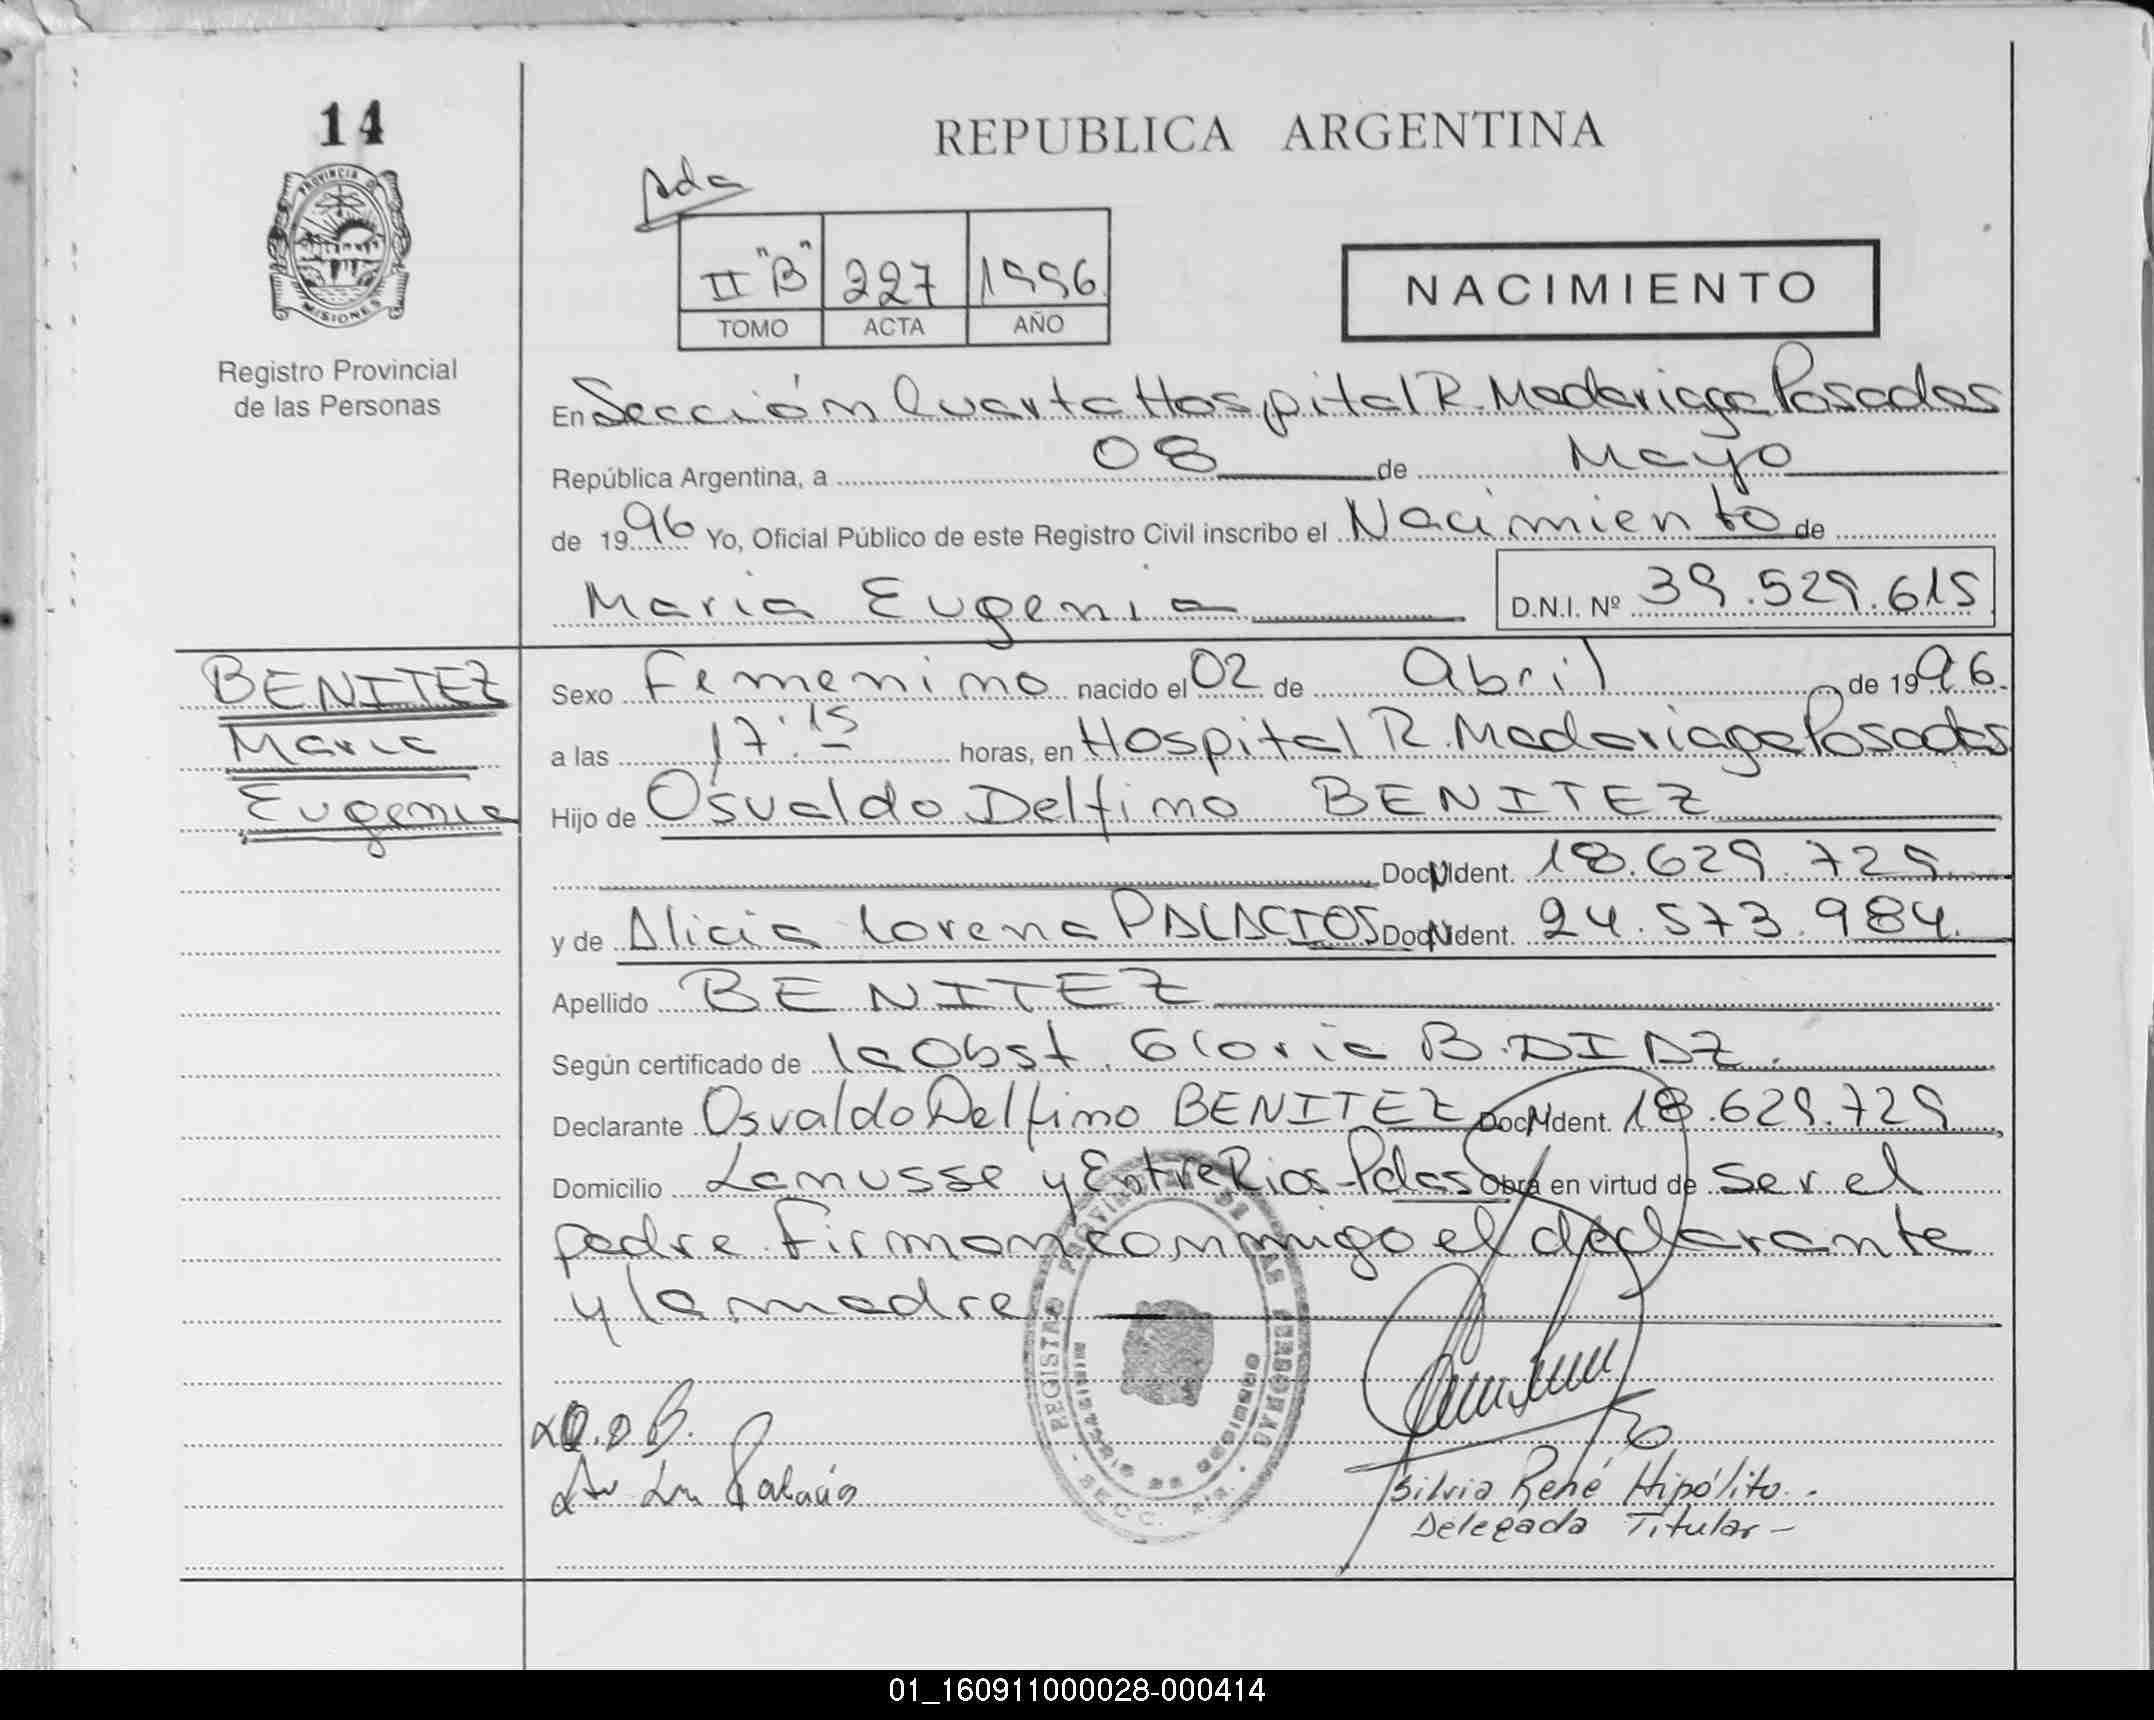 14
PROVINCIA D
MISIONES
Registro Provincial
de las Personas
REPUBLICA ARGENTINA
Pdas
II "B" 227 1996
TOMO ACTA AÑO
NACIMIENTO
En Sección Cuarta Hospital R. Madariaga Posadas
República Argentina, a 08 de Mayo
de 1996 Yo, Oficial Público de este Registro Civil inscribo el Nacimiento de
Maria Eugenia D.N.I. Nº 39.529.615
BENITEZ
Maria
Eugenia
Sexo Femenino nacido el 02 de Abril de 1996.
a las 17:15 horas, en Hospital R. Madariaga Posadas
Hijo de Osvaldo Delfino BENITEZ
Doc. N Ident. 18.629.729
y de Alicia Lorena PALACIOS Doc. N Ident. 24.573.984.
Apellido BENITEZ
Según certificado de la Obst. Gloria B. DIAZ.
Declarante Osvaldo Delfino BENITEZ Doc. N Ident. 18.629.729
Domicilio Lanusse y Entre Rios - Pdas Obra en virtud de ser el
padre. Firman conmigo el declarante
y la madre
REGISTRO PROVINCIAL DE LAS PERSONAS
MINISTERIO DE GOBIERNO
SECC. 4ta.
O.D B.
Palacios
Silvia René Hipólito.
Delegada Titular -
01_160911000028-000414